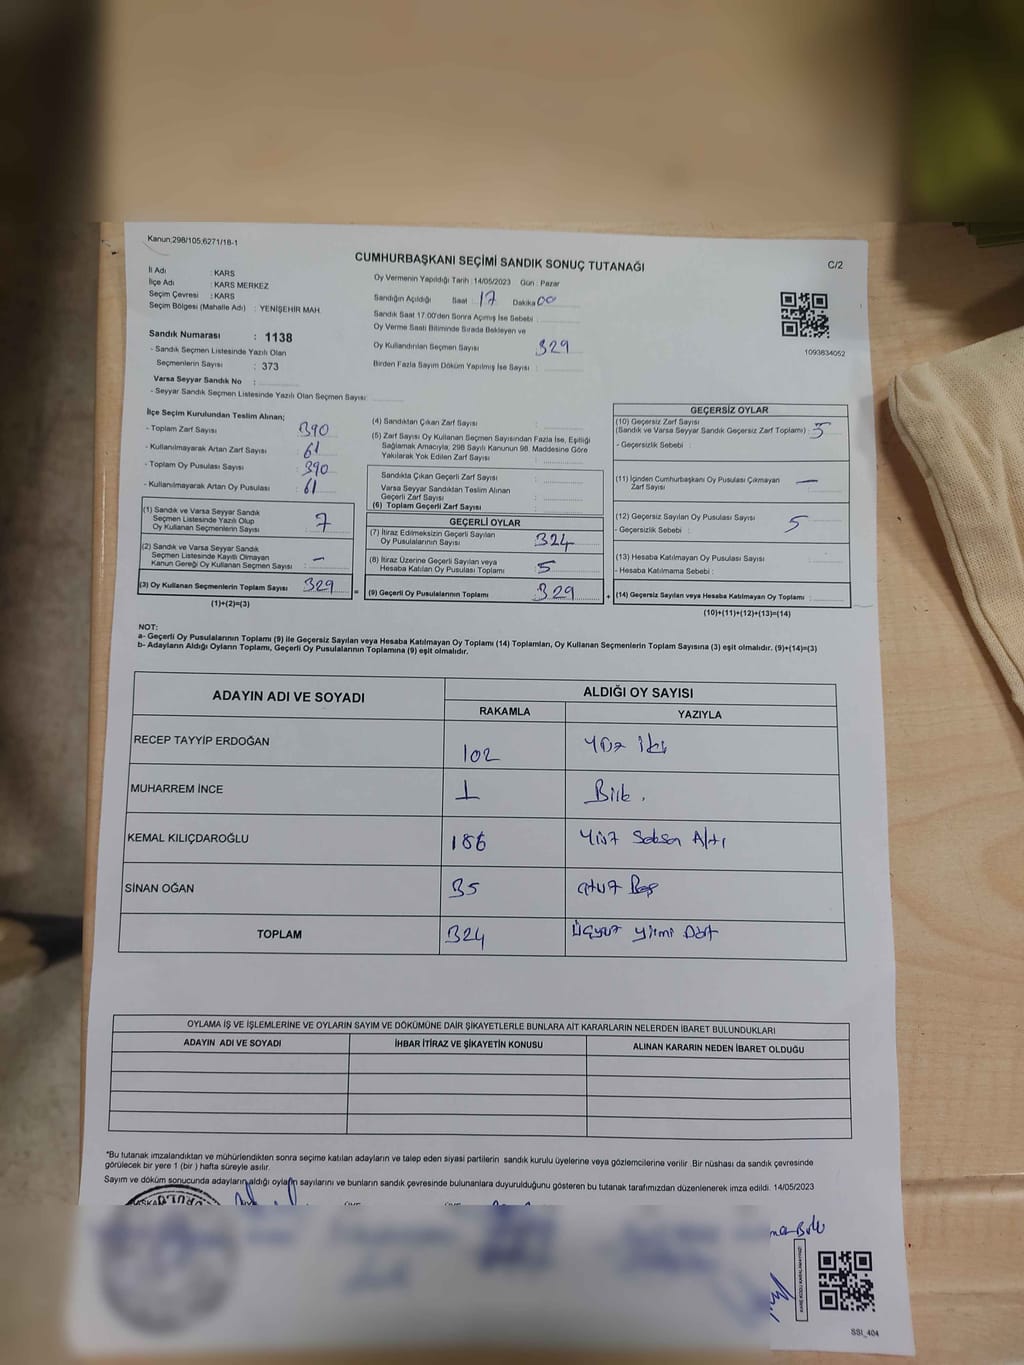 Kanun;298/105,6271/18-1
CUMHURBAŞKANI SEÇİMİ SANDIK SONUÇ TUTANAĞI
C/2
İl Adı : KARS
İlçe Adı : KARS MERKEZ
Seçim Çevresi : KARS
Seçim Bölgesi (Mahalle Adı) : YENİŞEHİR MAH.
Sandık Numarası : 1138
- Sandık Seçmen Listesinde Yazılı Olan
Seçmenlerin Sayısı : 373
Varsa Seyyar Sandık No :
- Seyyar Sandık Seçmen Listesinde Yazılı Olan Seçmen Sayısı:
Oy Vermenin Yapıldığı Tarih : 14/05/2023 Gün : Pazar
Sandığın Açıldığı Saat 17 Dakika 00
Sandık Saat 17.00'den Sonra Açımış İse Sebebi :
Oy Verme Saati Bitiminde Sırada Bekleyen ve
Oy Kullandırılan Seçmen Sayısı 329
Birden Fazla Sayım Döküm Yapılmış İse Sayısı :
1093834052
İlçe Seçim Kurulundan Teslim Alınan;
- Toplam Zarf Sayısı : 390
- Kullanılmayarak Artan Zarf Sayısı : 61
- Toplam Oy Pusulası Sayısı : 390
- Kullanılmayarak Artan Oy Pusulası : 61
(1) Sandık ve Varsa Seyyar Sandık
Seçmen Listesinde Yazılı Olup
Oy Kullanan Seçmenlerin Sayısı : 7
(2) Sandık ve Varsa Seyyar Sandık
Seçmen Listesinde Kayıtlı Olmayan
Kanun Gereği Oy Kullanan Seçmen Sayısı : -
(3) Oy Kullanan Seçmenlerin Toplam Sayısı : 329
(1)+(2)=(3)
(4) Sandıktan Çıkan Zarf Sayısı :
(5) Zarf Sayısı Oy Kullanan Seçmen Sayısından Fazla İse, Eşitliği
Sağlamak Amacıyla; 298 Sayılı Kanunun 98. Maddesine Göre
Yakılarak Yok Edilen Zarf Sayısı :
Sandıkta Çıkan Geçerli Zarf Sayısı :
Varsa Seyyar Sandıktan Teslim Alınan
Geçerli Zarf Sayısı :
(6) Toplam Geçerli Zarf Sayısı :
GEÇERLİ OYLAR
(7) İtiraz Edilmeksizin Geçerli Sayılan
Oy Pusulalarının Sayısı : 324
(8) İtiraz Üzerine Geçerli Sayılan veya
Hesaba Katılan Oy Pusulası Toplamı : 5
= (9) Geçerli Oy Pusulalarının Toplamı : 329
GEÇERSİZ OYLAR
(10) Geçersiz Zarf Sayısı
(Sandık ve Varsa Seyyar Sandık Geçersiz Zarf Toplamı) : 5
- Geçersizlik Sebebi :
(11) İçinden Cumhurbaşkanı Oy Pusulası Çıkmayan
Zarf Sayısı : -
(12) Geçersiz Sayılan Oy Pusulası Sayısı : 5
- Geçersizlik Sebebi :
(13) Hesaba Katılmayan Oy Pusulası Sayısı :
- Hesaba Katılmama Sebebi :
+ (14) Geçersiz Sayılan veya Hesaba Katılmayan Oy Toplamı :
(10)+(11)+(12)+(13)=(14)
NOT:
a- Geçerli Oy Pusulalarının Toplamı (9) ile Geçersiz Sayılan veya Hesaba Katılmayan Oy Toplamı (14) Toplamları, Oy Kullanan Seçmenlerin Toplam Sayısına (3) eşit olmalıdır. (9)+(14)=(3)
b- Adayların Aldığı Oyların Toplamı, Geçerli Oy Pusulalarının Toplamına (9) eşit olmalıdır.
ADAYIN ADI VE SOYADI
ALDIĞI OY SAYISI
RAKAMLA
YAZIYLA
RECEP TAYYİP ERDOĞAN 102 Yüz iki
MUHARREM İNCE 1 Bir
KEMAL KILIÇDAROĞLU 186 Yüz Seksen Altı
SİNAN OĞAN 35 otuz Beş
TOPLAM 324 üçyüz yirmi Dört
OYLAMA İŞ VE İŞLEMLERİNE VE OYLARIN SAYIM VE DÖKÜMÜNE DAİR ŞİKAYETLERLE BUNLARA AİT KARARLARIN NELERDEN İBARET BULUNDUKLARI
ADAYIN ADI VE SOYADI
İHBAR İTİRAZ VE ŞİKAYETİN KONUSU
ALINAN KARARIN NEDEN İBARET OLDUĞU
*Bu tutanak imzalandıktan ve mühürlendikten sonra seçime katılan adayların ve talep eden siyasi partilerin sandık kurulu üyelerine veya gözlemcilerine verilir. Bir nüshası da sandık çevresinde
görülecek bir yere 1 (bir ) hafta süreyle asılır.
Sayım ve döküm sonucunda adayların aldığı oyların sayılarını ve bunların sandık çevresinde bulunanlara duyurulduğunu gösteren bu tutanak tarafımızdan düzenlenerek imza edildi. 14/05/2023
SSİ_404